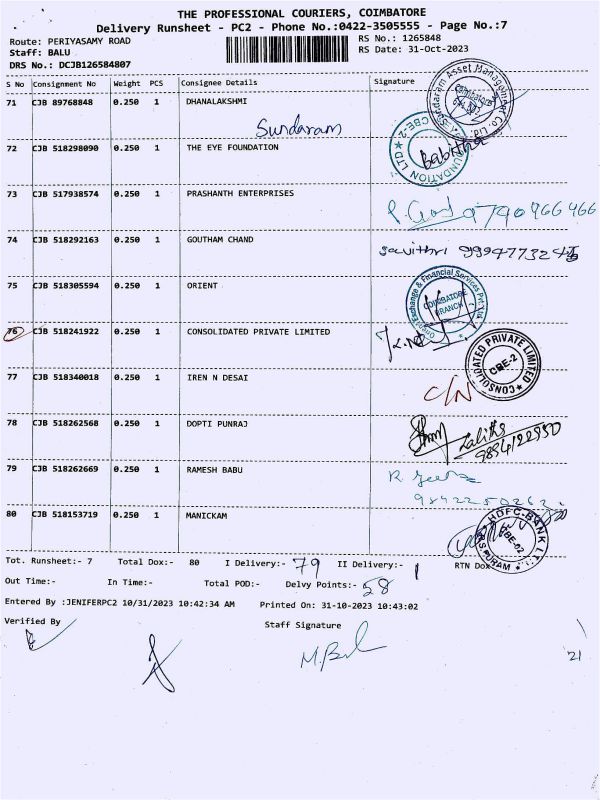 THE PROFESSIONAL COURIERS, COIMBATORE
Delivery Runsheet - PC2 - Phone No.:0422-3505555 - Page No.:7
Route: PERIYASAMY ROAD
RS No.: 1265848
Staff: BALU
RS Date: 31-Oct-2023
DRS No.: DCJB126584807
S No Consignment No Weight PCS Consignee Details Signature
71 CJB 89768848 0.250 1 DHANALAKSHMI
Sundaram Asset Management Co. Ltd.
Sundaram
72 CJB 518298090 0.250 1 THE EYE FOUNDATION Babitha
FOUNDATION LTD CBE-2
73 CJB 517938574 0.250 1 PRASHANTH ENTERPRISES
74 CJB 518292163 0.250 1 GOUTHAM CHAND Savithri
75 CJB 518305594 0.250 1 ORIENT
Exchange & Financial Services Pvt. Ltd.
COIMBATORE BRANCH
76 CJB 518241922 0.250 1 CONSOLIDATED PRIVATE LIMITED
CONSOLIDATED PRIVATE LIMITED
CBE-2
77 CJB 518340018 0.250 1 IREN N DESAI C/N
78 CJB 518262568 0.250 1 DOPTI PUNRAJ Lalitha
9894122950
79 CJB 518262669 0.250 1 RAMESH BABU
80 CJB 518153719 0.250 1 MANICKAM
HDFC-BANK LT
R.S PURAM CBE-02
Tot. Runsheet:- 7 Total Dox:- 80 I Delivery:- 79 II Delivery:- 1 RTN Dox
Out Time:- In Time:- Total POD:- Delvy Points:- 58
Entered By :JENIFERPC2 10/31/2023 10:42:34 AM Printed On: 31-10-2023 10:43:02
Verified By Staff Signature
21